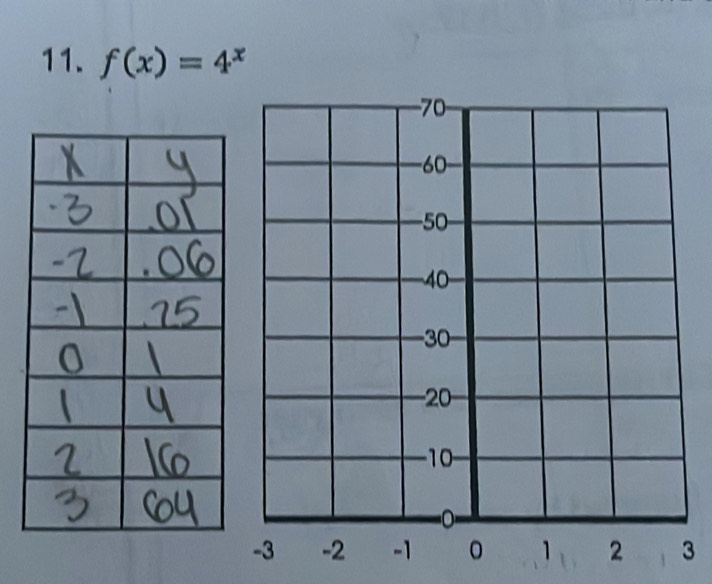 11. f(x) = 4ˣ
x y
-3 .01
-2 .06
-1 .25
0 1
1 4
2 16
3 64
70
60
50
40
30
20
10
0
-3 -2 -1 0 1 2 3